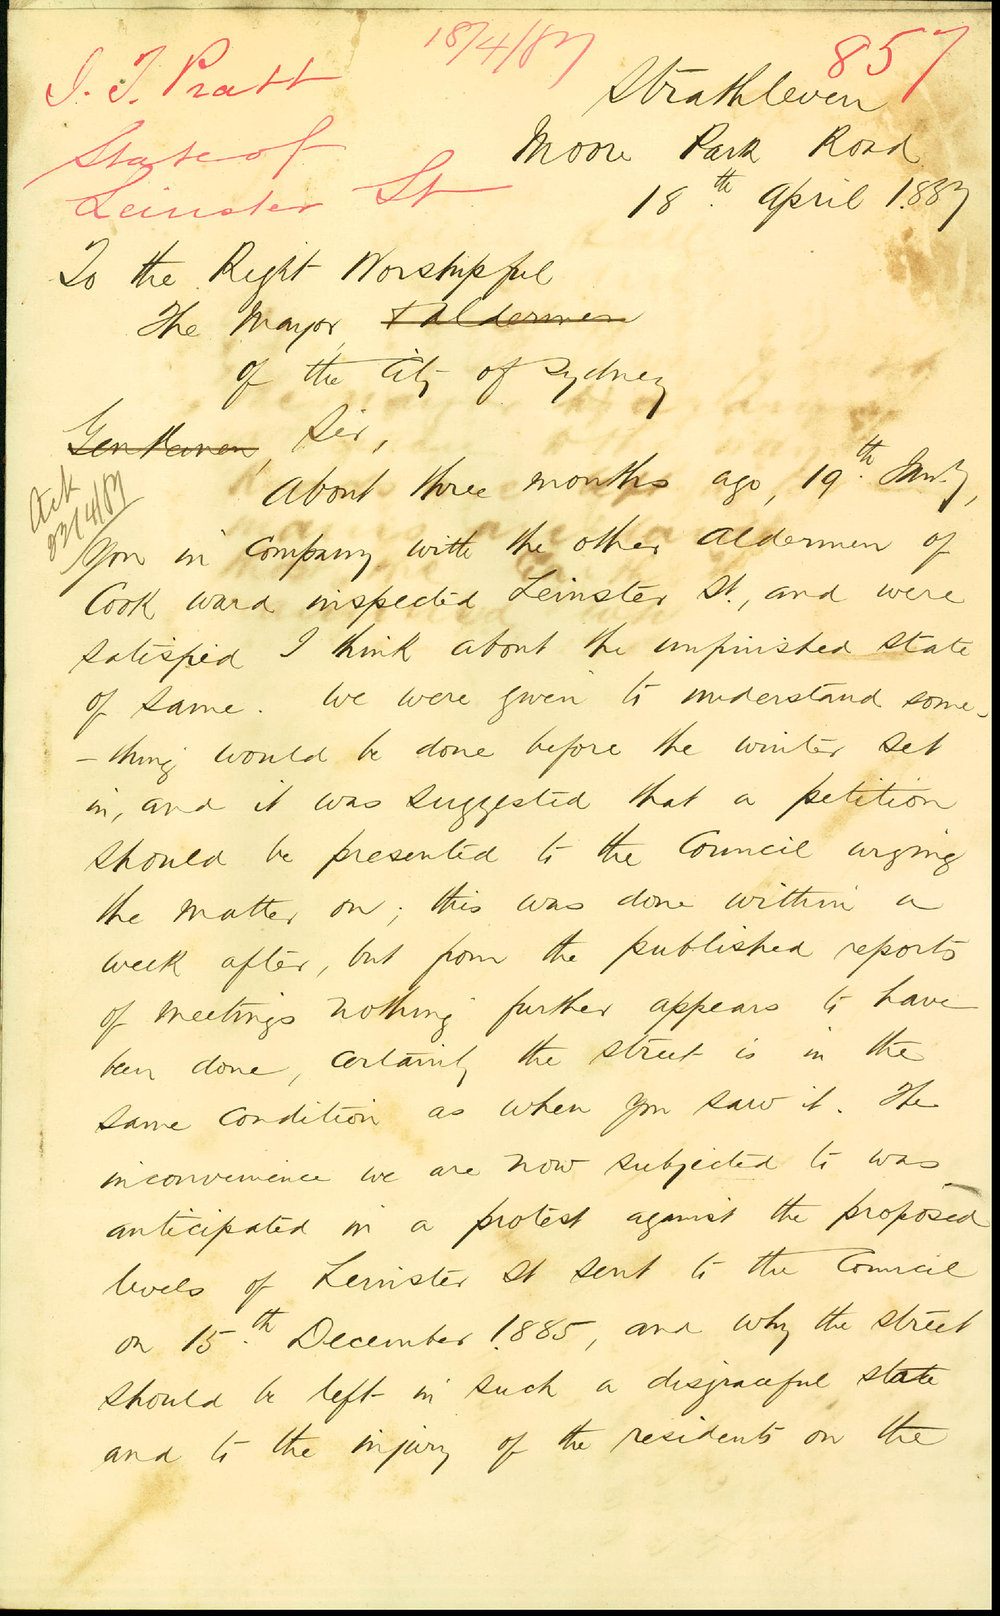 18/4/87
857
J. T. Pratt
State of
Leinster St
Strathleven
Moore Park Road
18th April 1887
To the Right Worshipful
The Mayor, & Aldermen
of the City of Sydney
Gentlemen, Sir,
Ack
22/4/87
About three months ago, 19th Jany,
you in company with the other Aldermen of
Cook ward inspected Leinster St., and were
satisfied I think about the unfinished state
of same. We were given to understand some-
-thing would be done before the winter set
in, and it was suggested that a petition
should be presented to the Council urging
the matter on; this was done within a
week after, but from the published reports
of meetings nothing further appears to have
been done, certainly the street is in the
same condition as when you saw it. The
inconvenience we are now subjected to was
anticipated in a protest against the proposed
levels of Leinster St sent to the Council
on 15th December 1885, and why the street
should be left in such a disgraceful state
and to the injury of the residents on the